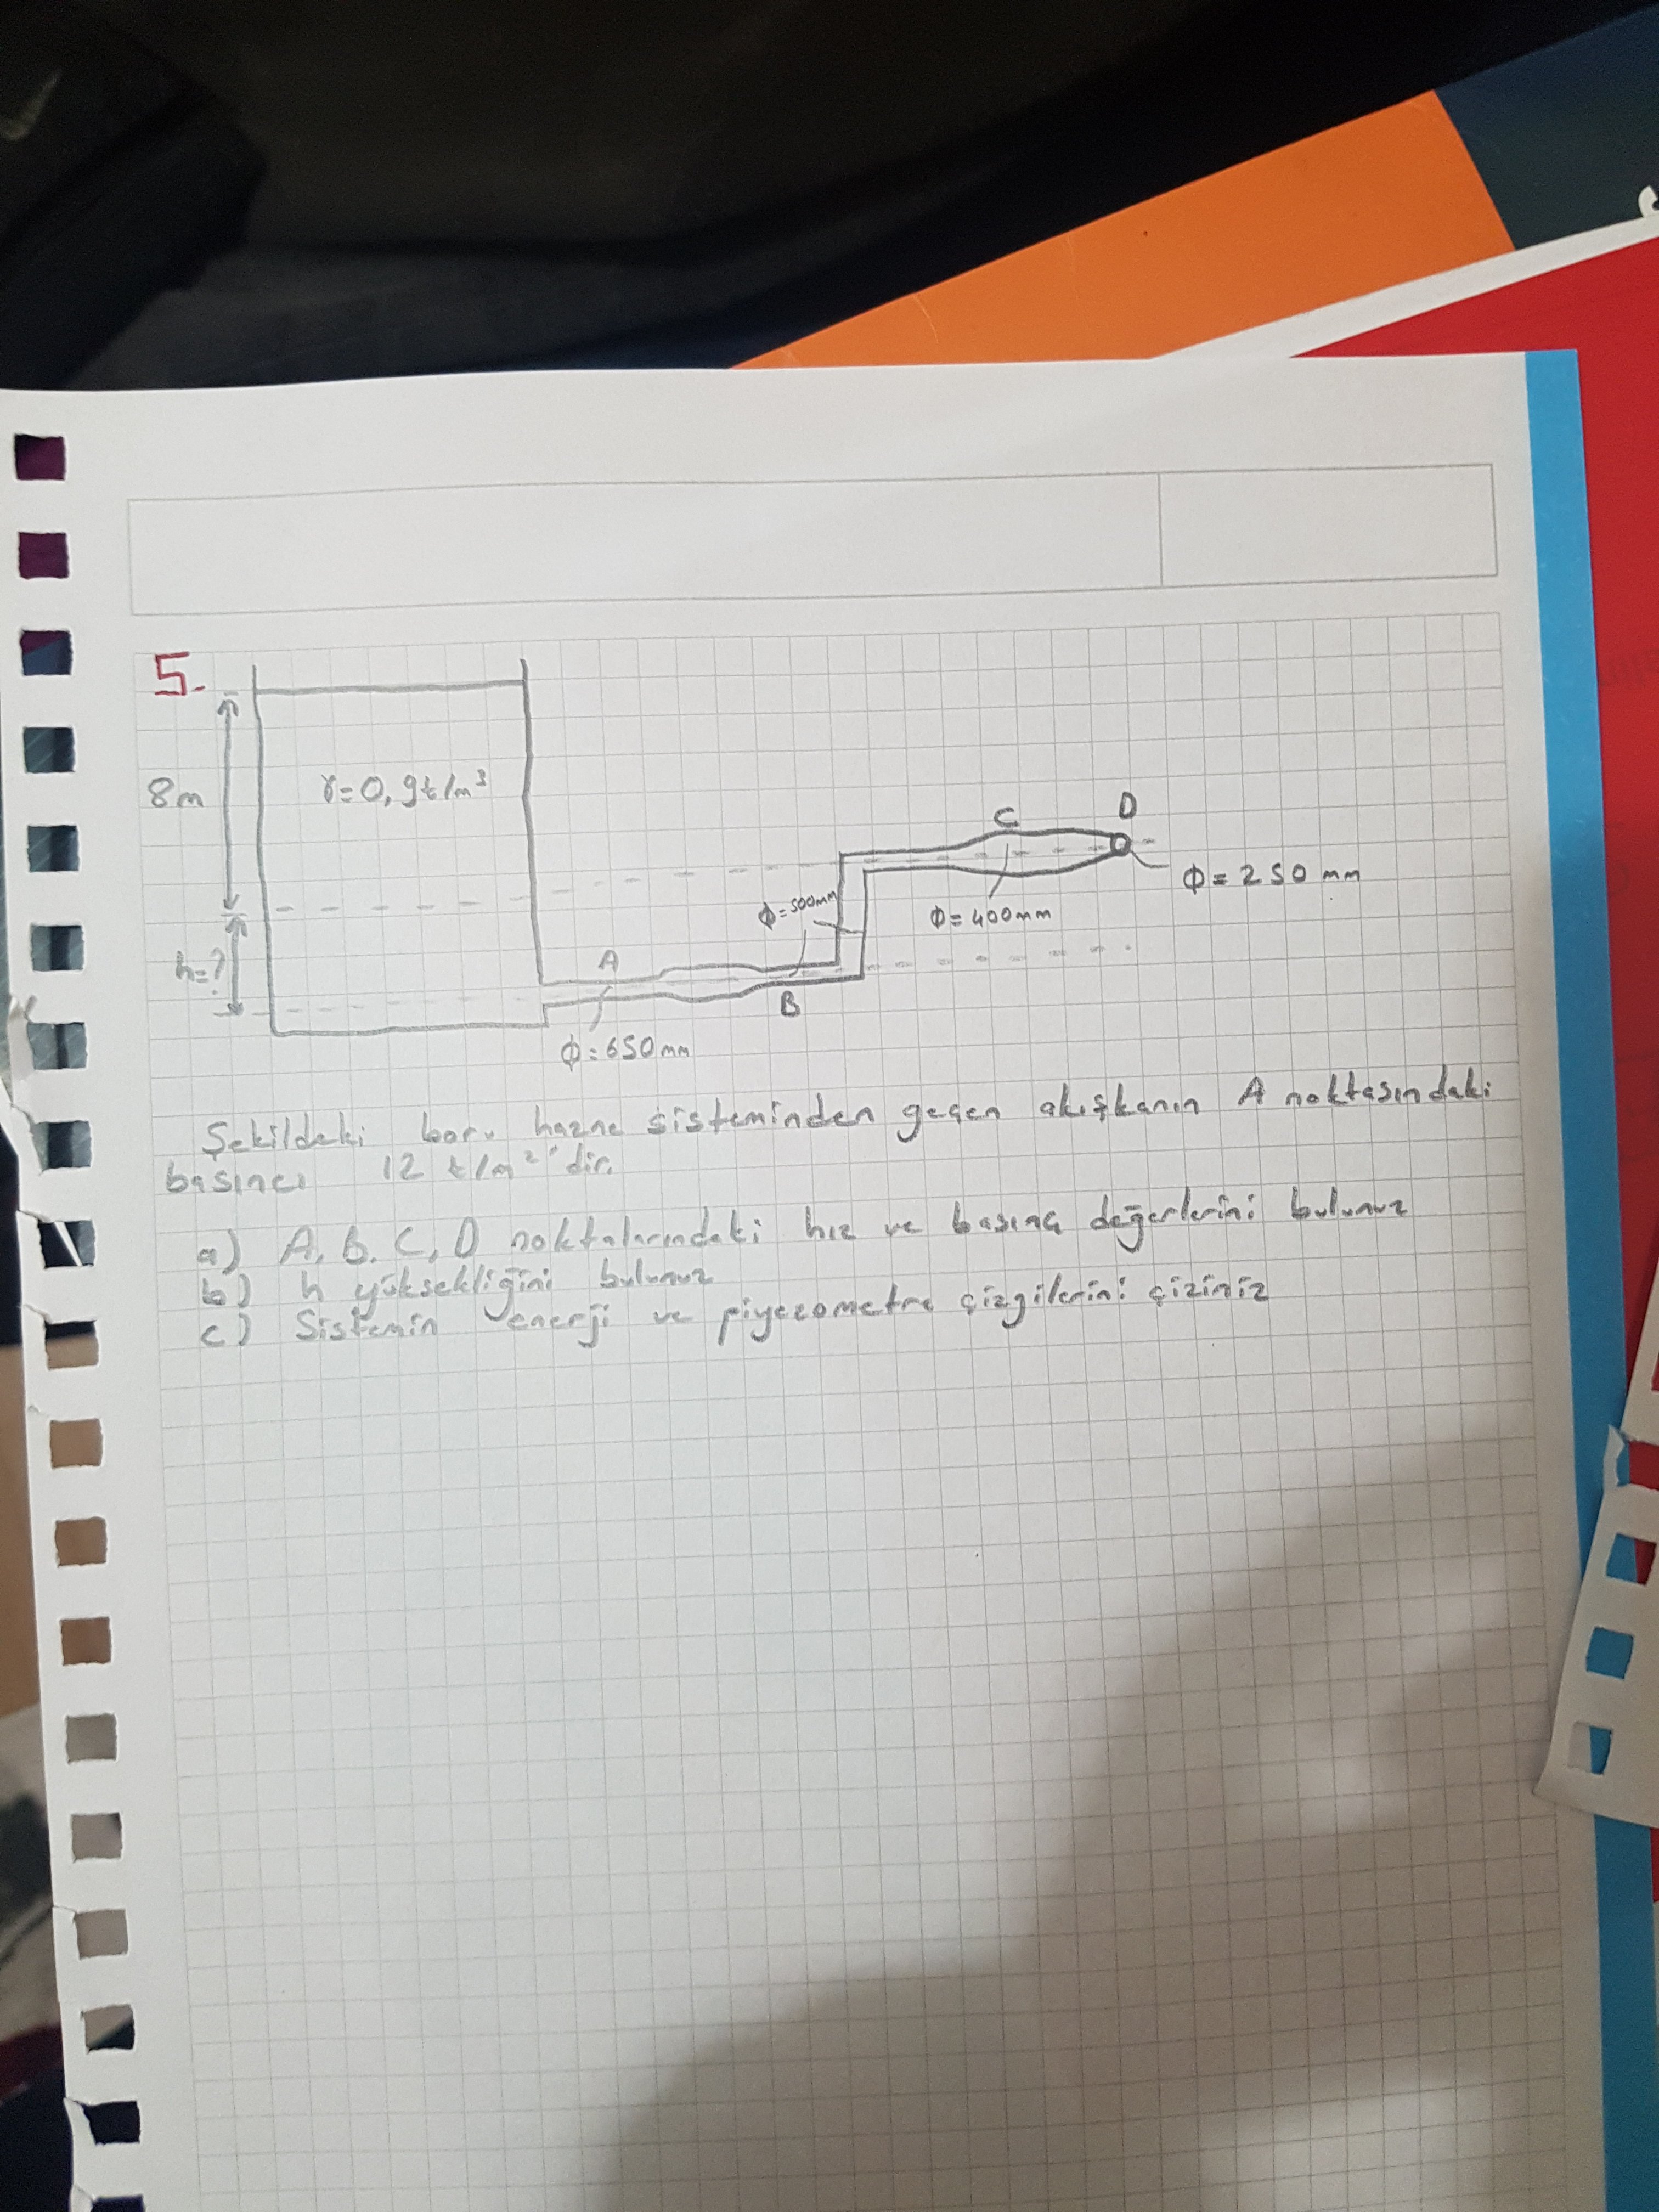 5.
8m
γ=0,9t/m³
C
D
Φ=250mm
Φ=500mm
Φ=400mm
h=?
A
B
Φ=650mm
Şekildeki boru hazne sisteminden geçen akışkanın A noktasındaki
basıncı 12 t/m²'dir.
a) A, B, C, D noktalarındaki hız ve basınç değerlerini bulunuz
b) h yüksekliğini bulunuz
c) Sistemin enerji ve piyezometre çizgilerini çiziniz